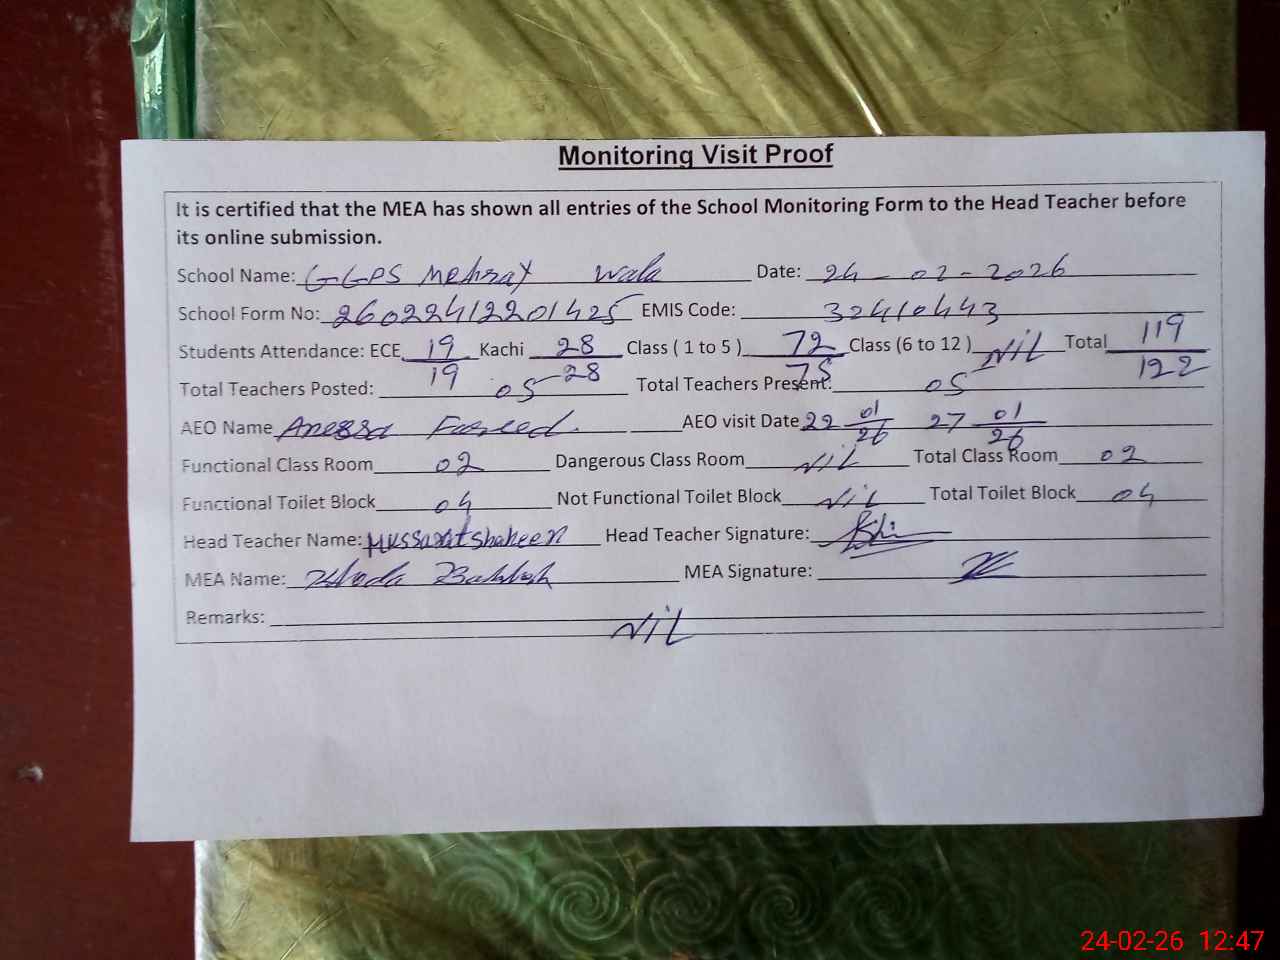 Monitoring Visit Proof
It is certified that the MEA has shown all entries of the School Monitoring Form to the Head Teacher before
its online submission.
School Name: GGPS Mehray Wala Date: 24-02-2026
School Form No: 26022412201425 EMIS Code: 32410443
Students Attendance: ECE 19/19 Kachi 28/28 Class ( 1 to 5 ) 72/75 Class (6 to 12 ) NiL Total 119/122
Total Teachers Posted: 05 Total Teachers Present: 05
AEO Name Anessa Fareed. AEO visit Date 22 01/26 27 01/26
Functional Class Room 02 Dangerous Class Room NiL Total Class Room 02
Functional Toilet Block 04 Not Functional Toilet Block NiL Total Toilet Block 04
Head Teacher Name: Mussarat shaheen Head Teacher Signature:
MEA Name: Khoda Bakhsh MEA Signature:
Remarks: NiL
24-02-26 12:47